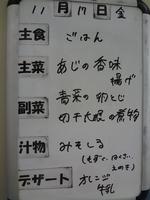 11月17日金
主食 ごはん
主菜 あじの香味
揚げ
副菜 青菜の卵とじ
切干大根の煮物
汁物 みそしる
(もずく、はくさい、
えのき)
デザート オレンジ
牛乳